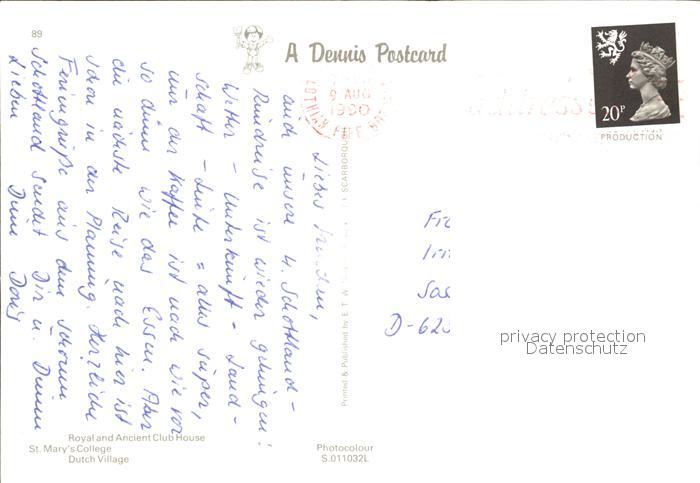 89
A Dennis Postcard
9 AUG
1990
FIFE
20P
PRODUCTION
auch unsere 4. Schottland-
Rundreise ist wieder gelungen!
Wetter - Unterkunft - Land-
schaft - Leute = alles super,
nur der Kaffee ist nach wie vor
so dünn wie das Essen. Aber
die nächste Reise nach hier ist
schon in der Planung. Herzliche
Feriengrüße aus dem schönen
Schottland sendet Dir u. Deinen
Lieben Deine Doris
D-620
privacy protection
Datenschutz
Printed & Published by E. T. W. SCARBOROUGH
Royal and Ancient Club House
St. Mary's College
Dutch Village
Photocolour
S.011032L